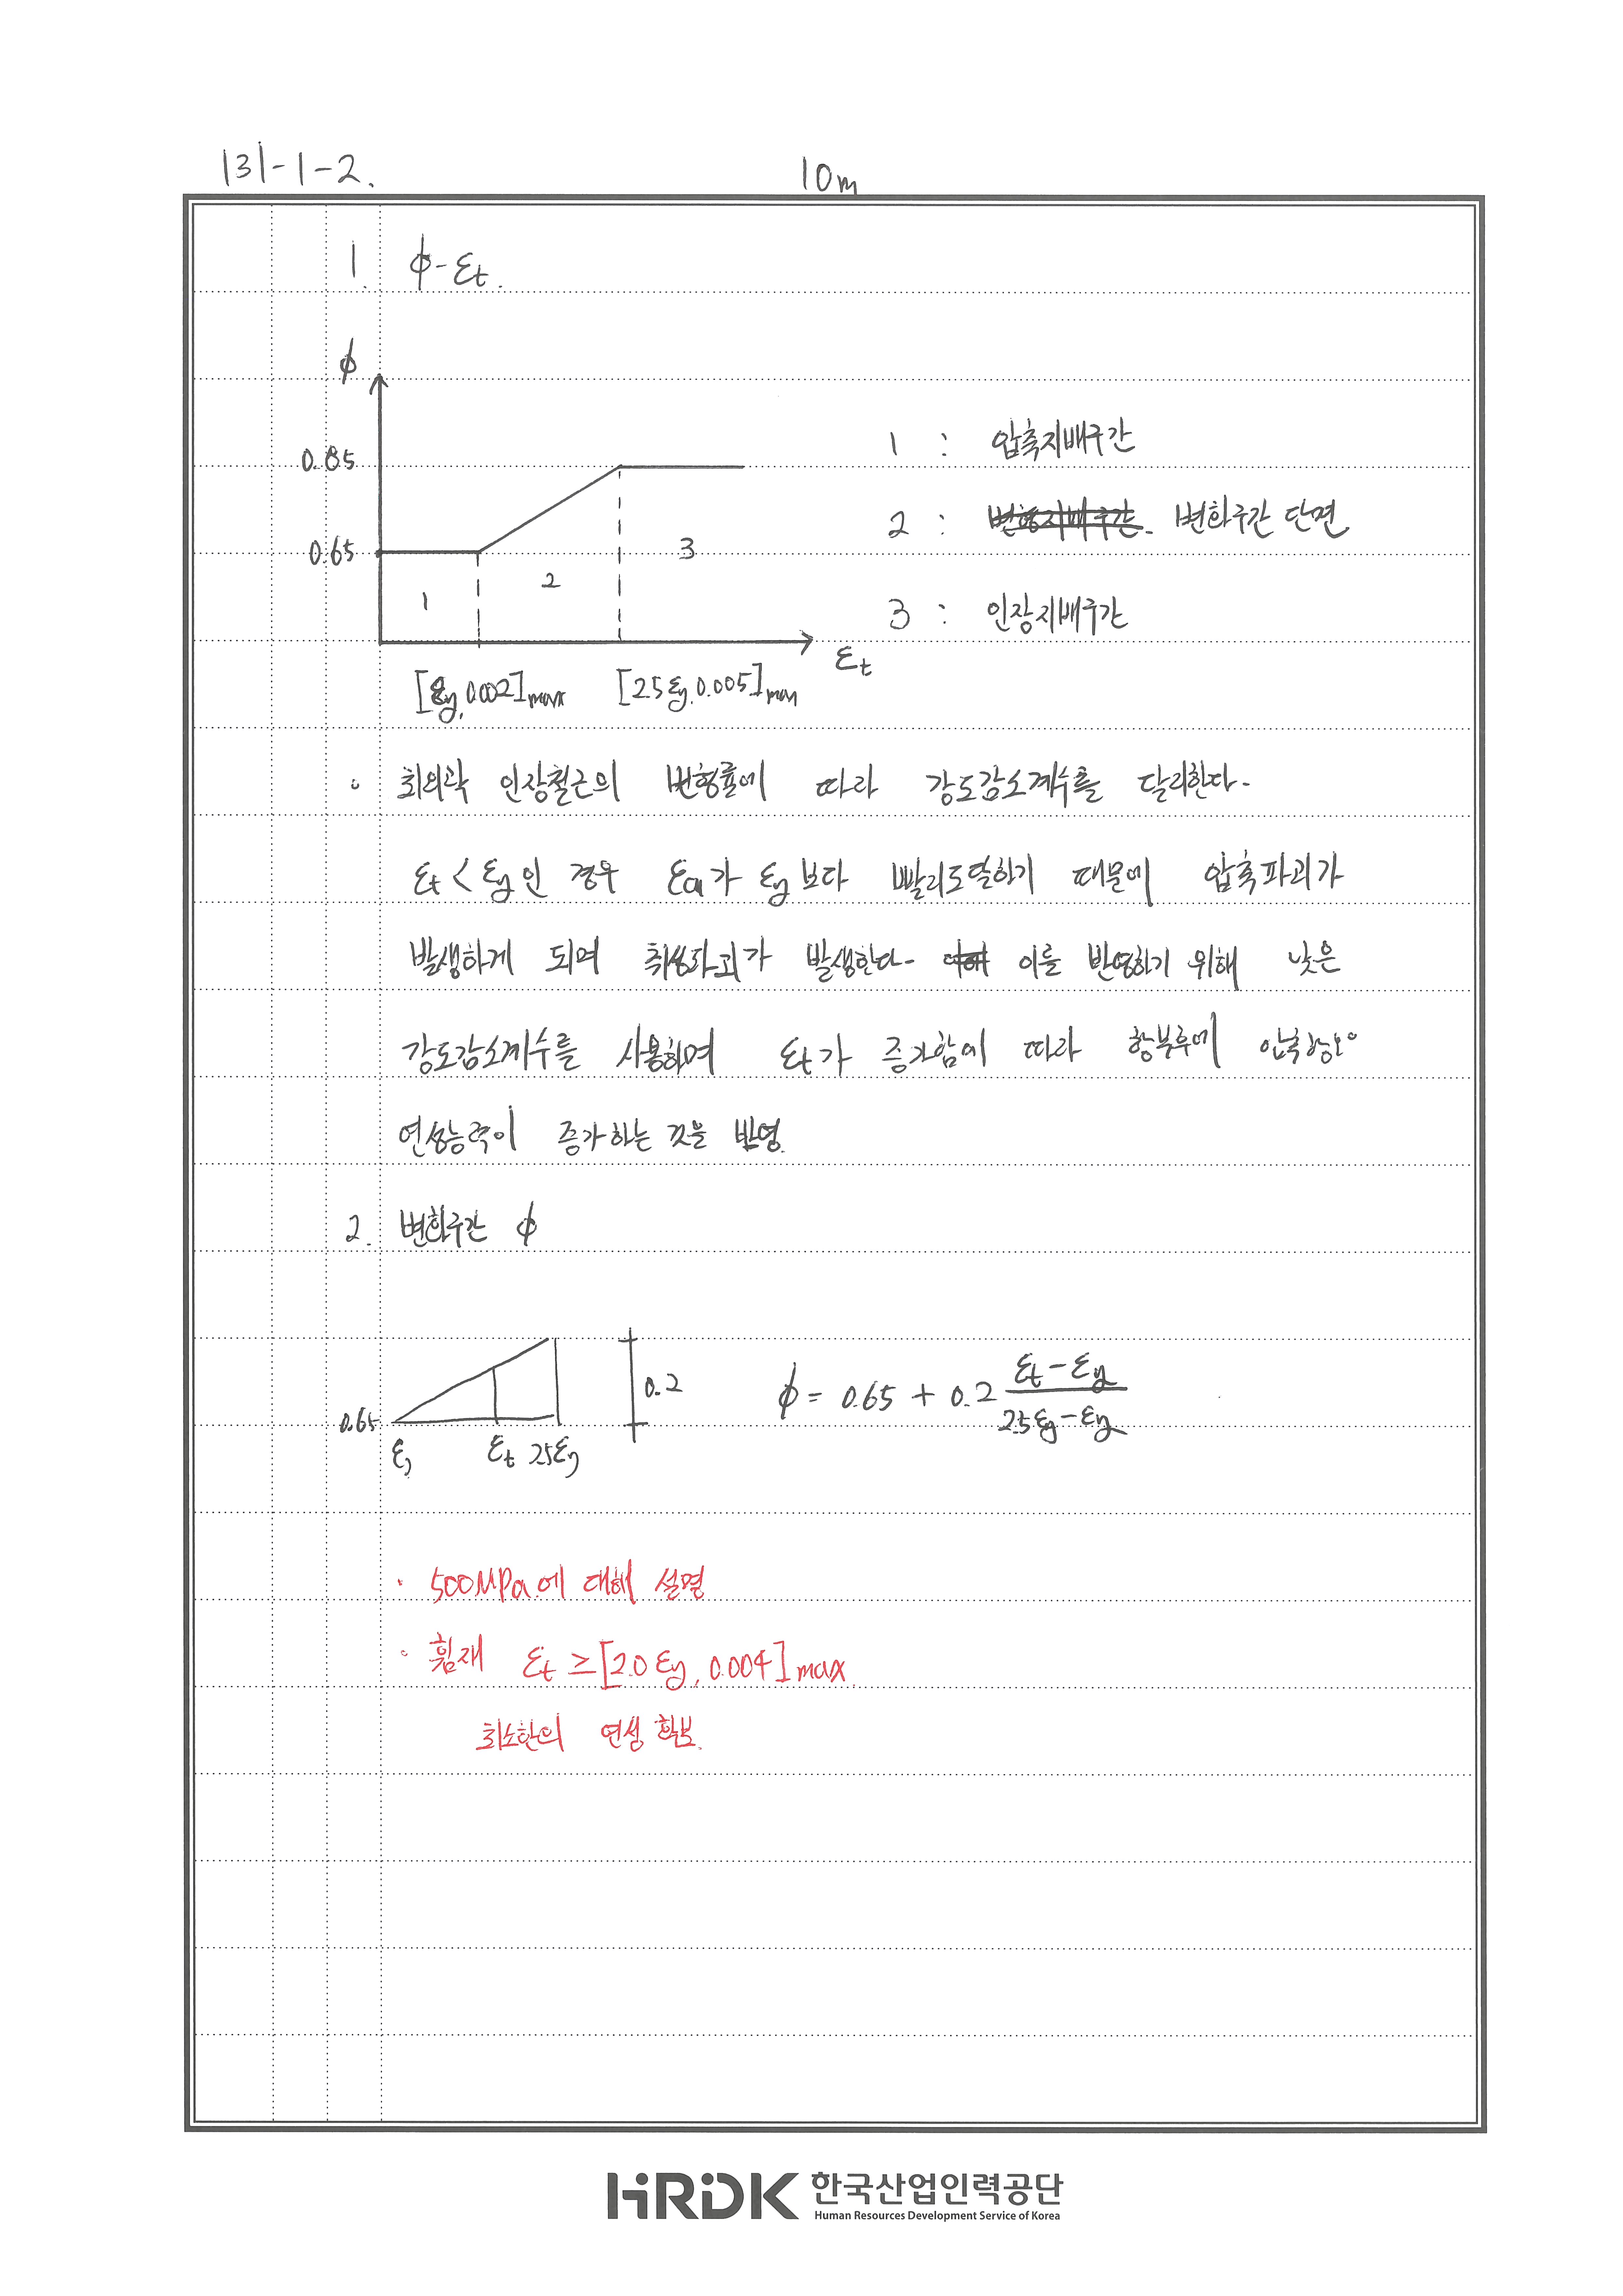 131-1-2.
10m
1. ϕ-εt.
ϕ
0.85
0.65
1
2
3
εt
[εy, 0.002]max
[2.5εy, 0.005]max
1 : 압축지배구간
2 : 변화구간 단면
3 : 인장지배구간
◦ 최외곽 인장철근의 변형률에 따라 강도감소계수를 달리한다.
εt < εy인 경우 εcu가 εy보다 빨리도달하기 때문에 압축파괴가
발생하게 되며 취성파괴가 발생한다. 이를 반영하기 위해 낮은
강도감소계수를 사용하며 εt가 증가함에 따라 항복후에
연성능력이 증가하는 것을 반영.
2. 변화구간 ϕ
0.65
εy
εt
2.5εy
0.2
ϕ = 0.65 + 0.2 (εt-εy)/(2.5εy-εy)
· 500MPa에 대해 설명
◦ 휨재 εt ≥ [2.0εy, 0.004]max
최소한의 연성 확보.
HRDK 한국산업인력공단
Human Resources Development Service of Korea